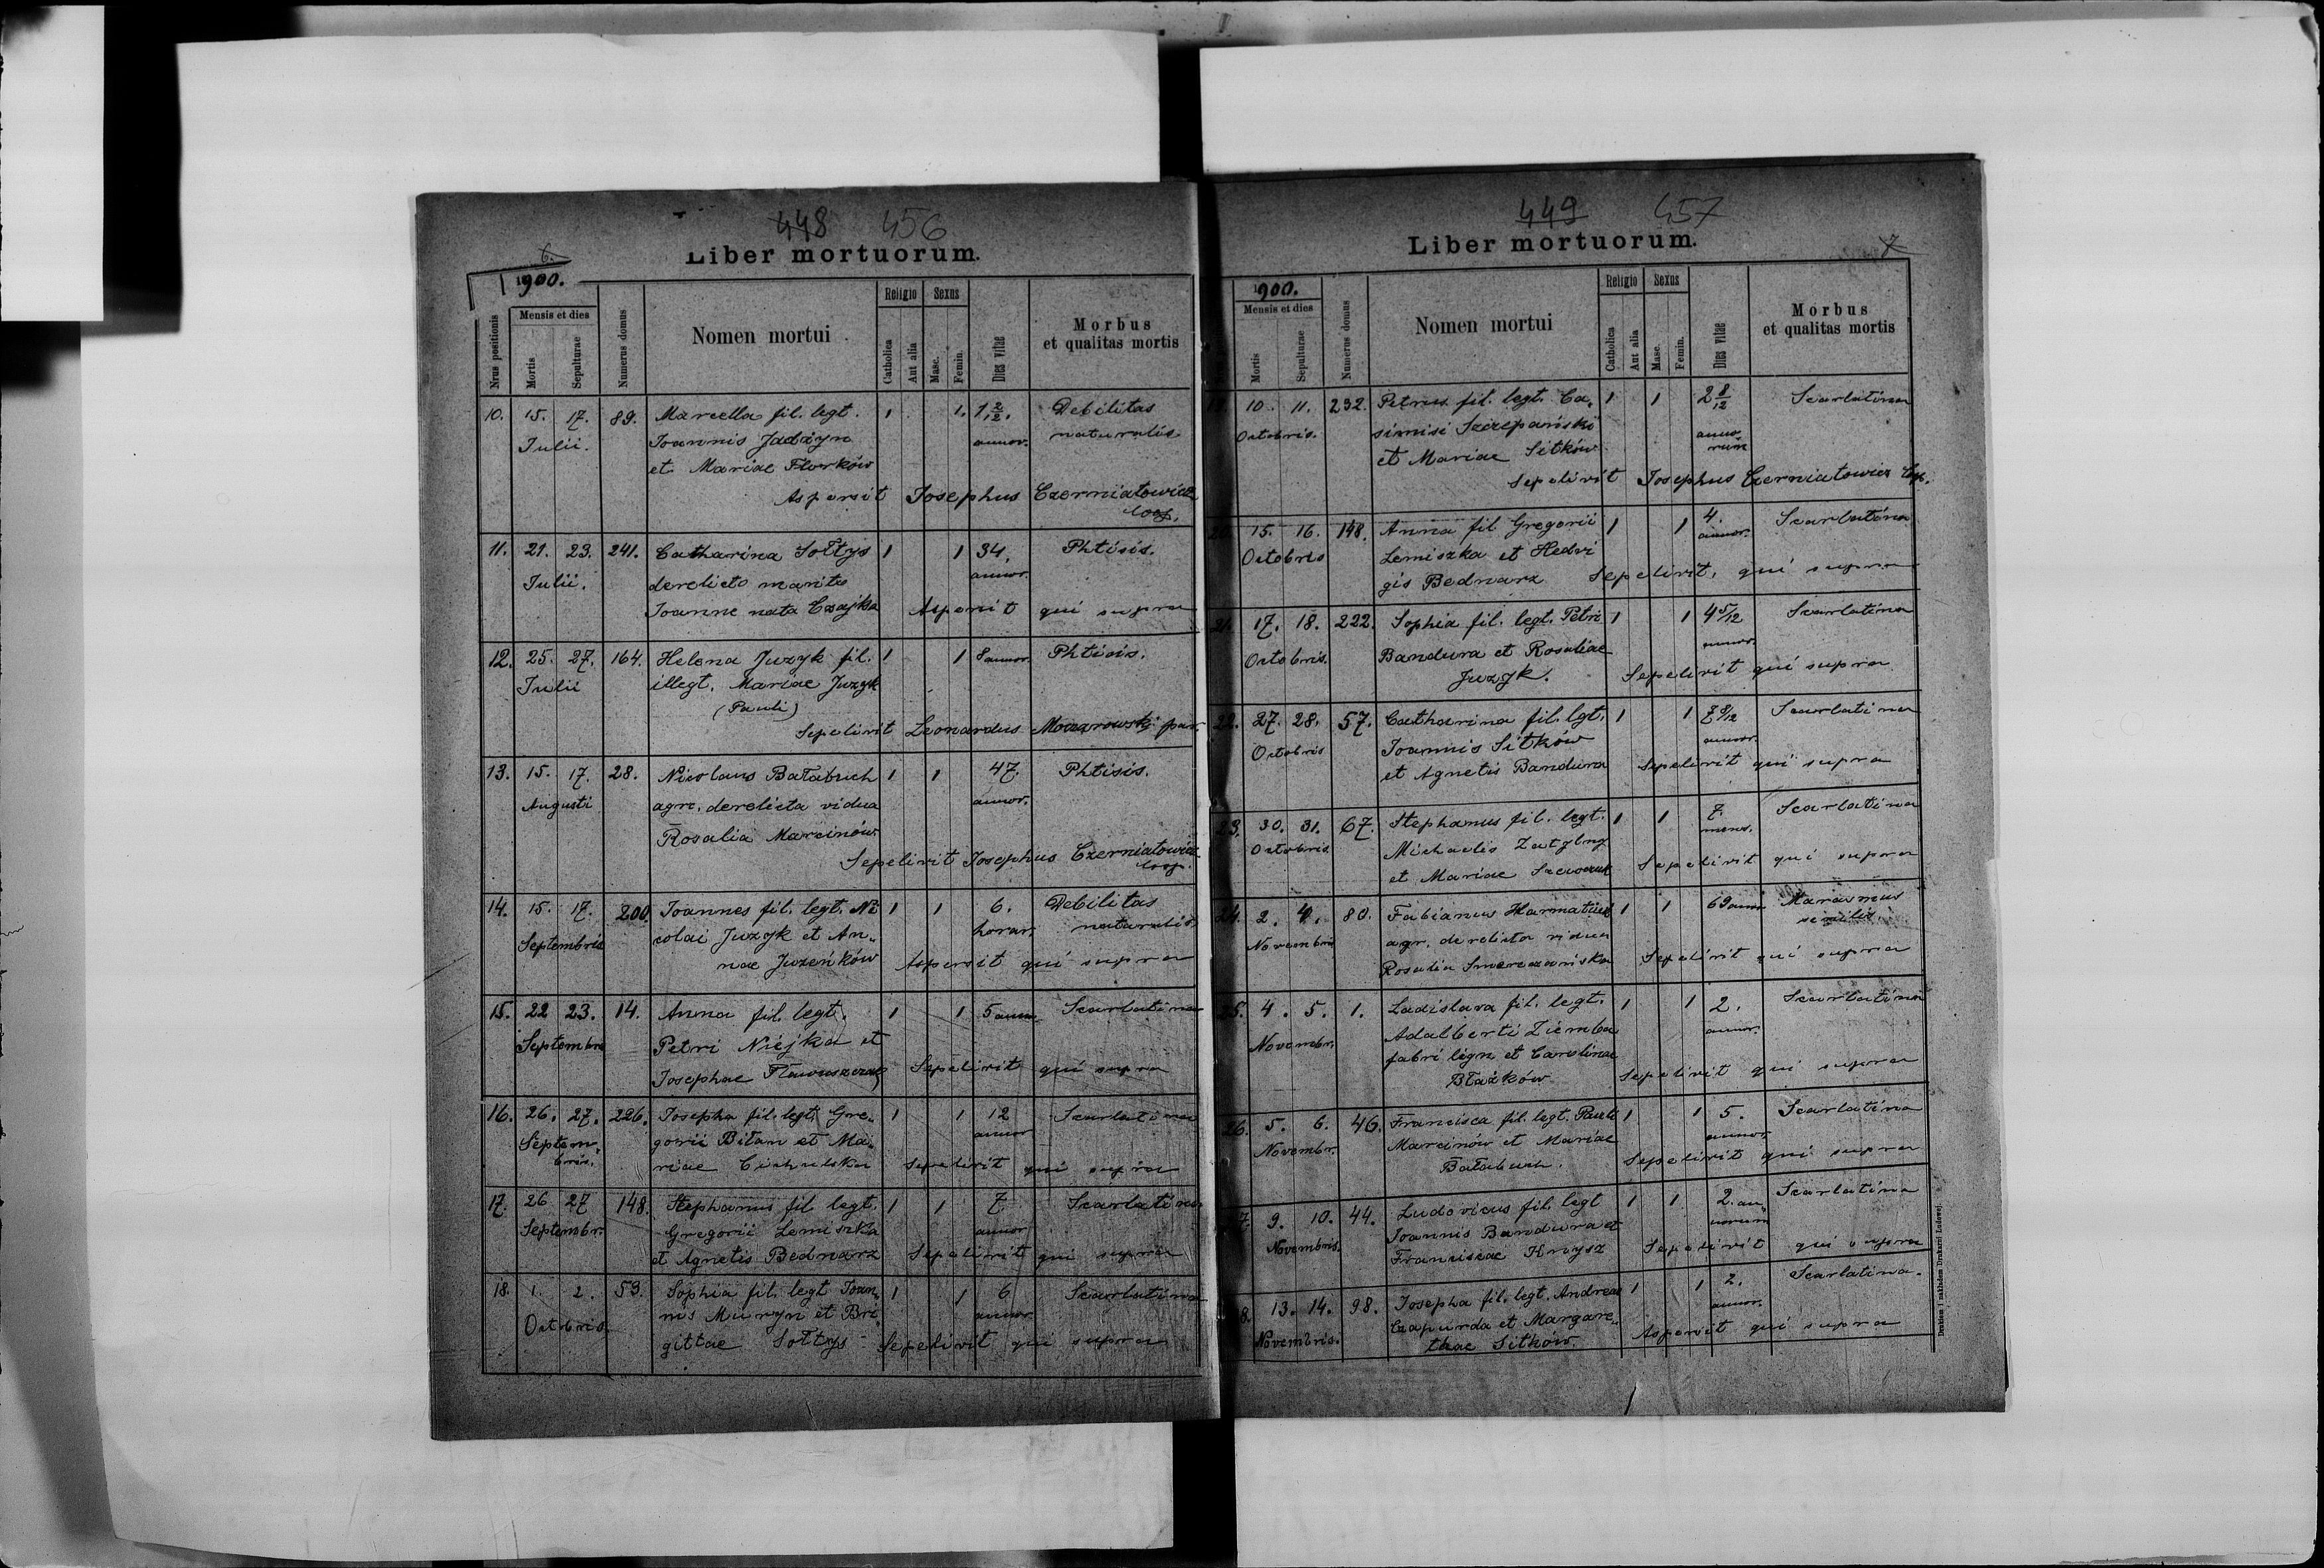 448 456
Liber mortuorum.
6.
1900.
Nrus positionis
Mensis et dies
Mortis
Sepulturae
Numerus domus
Nomen mortui
Religio
Catholica
Aut alia
Sexus
Masc.
Femin.
Dies vitae
Morbus
et qualitas mortis
10. 15. 17. 89. Marcella fil. legt. 1 1. 1 2/12. Debilitas
Julii. Joannis Jadżyn annor. naturalis
et Mariae Florków
Aspersit Josephus Czerniatowicz
coop.
11. 21. 23. 241. Catharina Sołtys 1 1 34. Phtisis.
Julii. derelicto marito annor.
Joanne nata Czajka Aspersit qui supra
12. 25. 27. 164. Helena Juzyk fil. 1 1 8 annor. Phtisis.
Julii illegt. Mariae Juzyk
(Pauli)
Sepelivit Leonardus Mozarowski par.
13. 15. 17. 28. Nicolaus Bałabuch 1 1 47. Phtisis.
Augusti agrc. derelicta vidua annor.
Rosalia Marcinów
Sepelivit Josephus Czerniatowicz
coop.
14. 15. 17. 200. Joannes fil. legt. Ni 1 1 6. Debilitas
Septembris colai Juzyk et An„ horar. naturalis.
nae Juzeńków Aspersit qui supra
15. 22 23. 14. Anna fil. legt. 1 1 5 annor Scarlatina
Septembris Petri Niejka et
Josephae Sepelivit qui supra
16. 26. 27. 226. Josepha fil. legt. Gre„ 1 1 12 Scarlatina
Septem„ gorii Bilan et Ma„ annor
bris. riae Cichulska Sepelivit qui supra
17. 26 27 148. Stephanus fil. legt. 1 1 7 Scarlatina
Septembr. Gregorii Lemiszka annor
et Agnetis Bednarz Sepelivit qui supra
18. 1. 2. 53. Sophia fil. legt Joan„ 1 1 6 Scarlatina
Octobris. nis Muryn et Bri„ annor
gittae Sołtys Sepelivit qui supra
449 457
Liber mortuorum.
7
1900.
Mensis et dies
Mortis
Sepulturae
Numerus domus
Nomen mortui
Religio
Catholica
Aut alia
Sexus
Masc.
Femin.
Dies vitae
Morbus
et qualitas mortis
10. 11. 232. Petrus fil. legt. Ca„ 1 1 2 8/12 Scarlatina
Octobris. simisi Szczepański anno
et Mariae Sitków rum
Sepelivit Josephus Czerniatowicz Coop.
20. 15. 16. 148. Anna fil Gregorii 1 1 4. Scarlatina
Octobris Lemiszka et Hedvi annor.
gis Bednarz Sepelivit, qui supra
21. 17. 18. 222. Sophia fil. legt. Petri 1 1 4 5/12 Scarlatina
Octobris. Bandura et Rosaliae annor.
Juzyk. Sepelivit qui supra
22. 27. 28. 57. Catharina fil. lgt. 1 1 Scarlatina
Octobris Joannis Sitków annor.
et Agnetis Bandura Sepelivit qui supra
23. 30. 31. 67. Stephanus fil. legt. 1 1 7. Scarlatina
Octobris Michaelis mens.
et Mariae Sepelivit qui supra
24. 2. 4. 80. Fabianus 1 1 69 annor Marasmus
Novembris agr. derelicta vidua senilis
Rosalia Sepelivit qui supra
25. 4. 5. 1. Ladislava fil. legt. 1 1 2. Scarlatina
Novembr. Adalberti Ziemba annor.
fabri lign. et Carolinae
Błażków Sepelivit qui supra
26. 5. 6. 46. Francisca fil. legt. Pauli 1 1 5. Scarlatina
Novembr. Marcinów et Mariae annor.
Bałabuch. Sepelivit qui supra
27. 9. 10. 44. Ludovicus fil. legt 1 1 2. an„ Scarlatina
Novembris. Joannis Bandura et norum
Franciscae Hnysz Sepelivit qui supra
28. 13. 14. 98. Josepha fil. legt. Andreae 1 1 2. Scarlatina.
Novembris. Czapurda et Margare„ annor.
thae Sitków. Aspersit qui supra
Drukiem i nakładem Drukarni Ludowej.